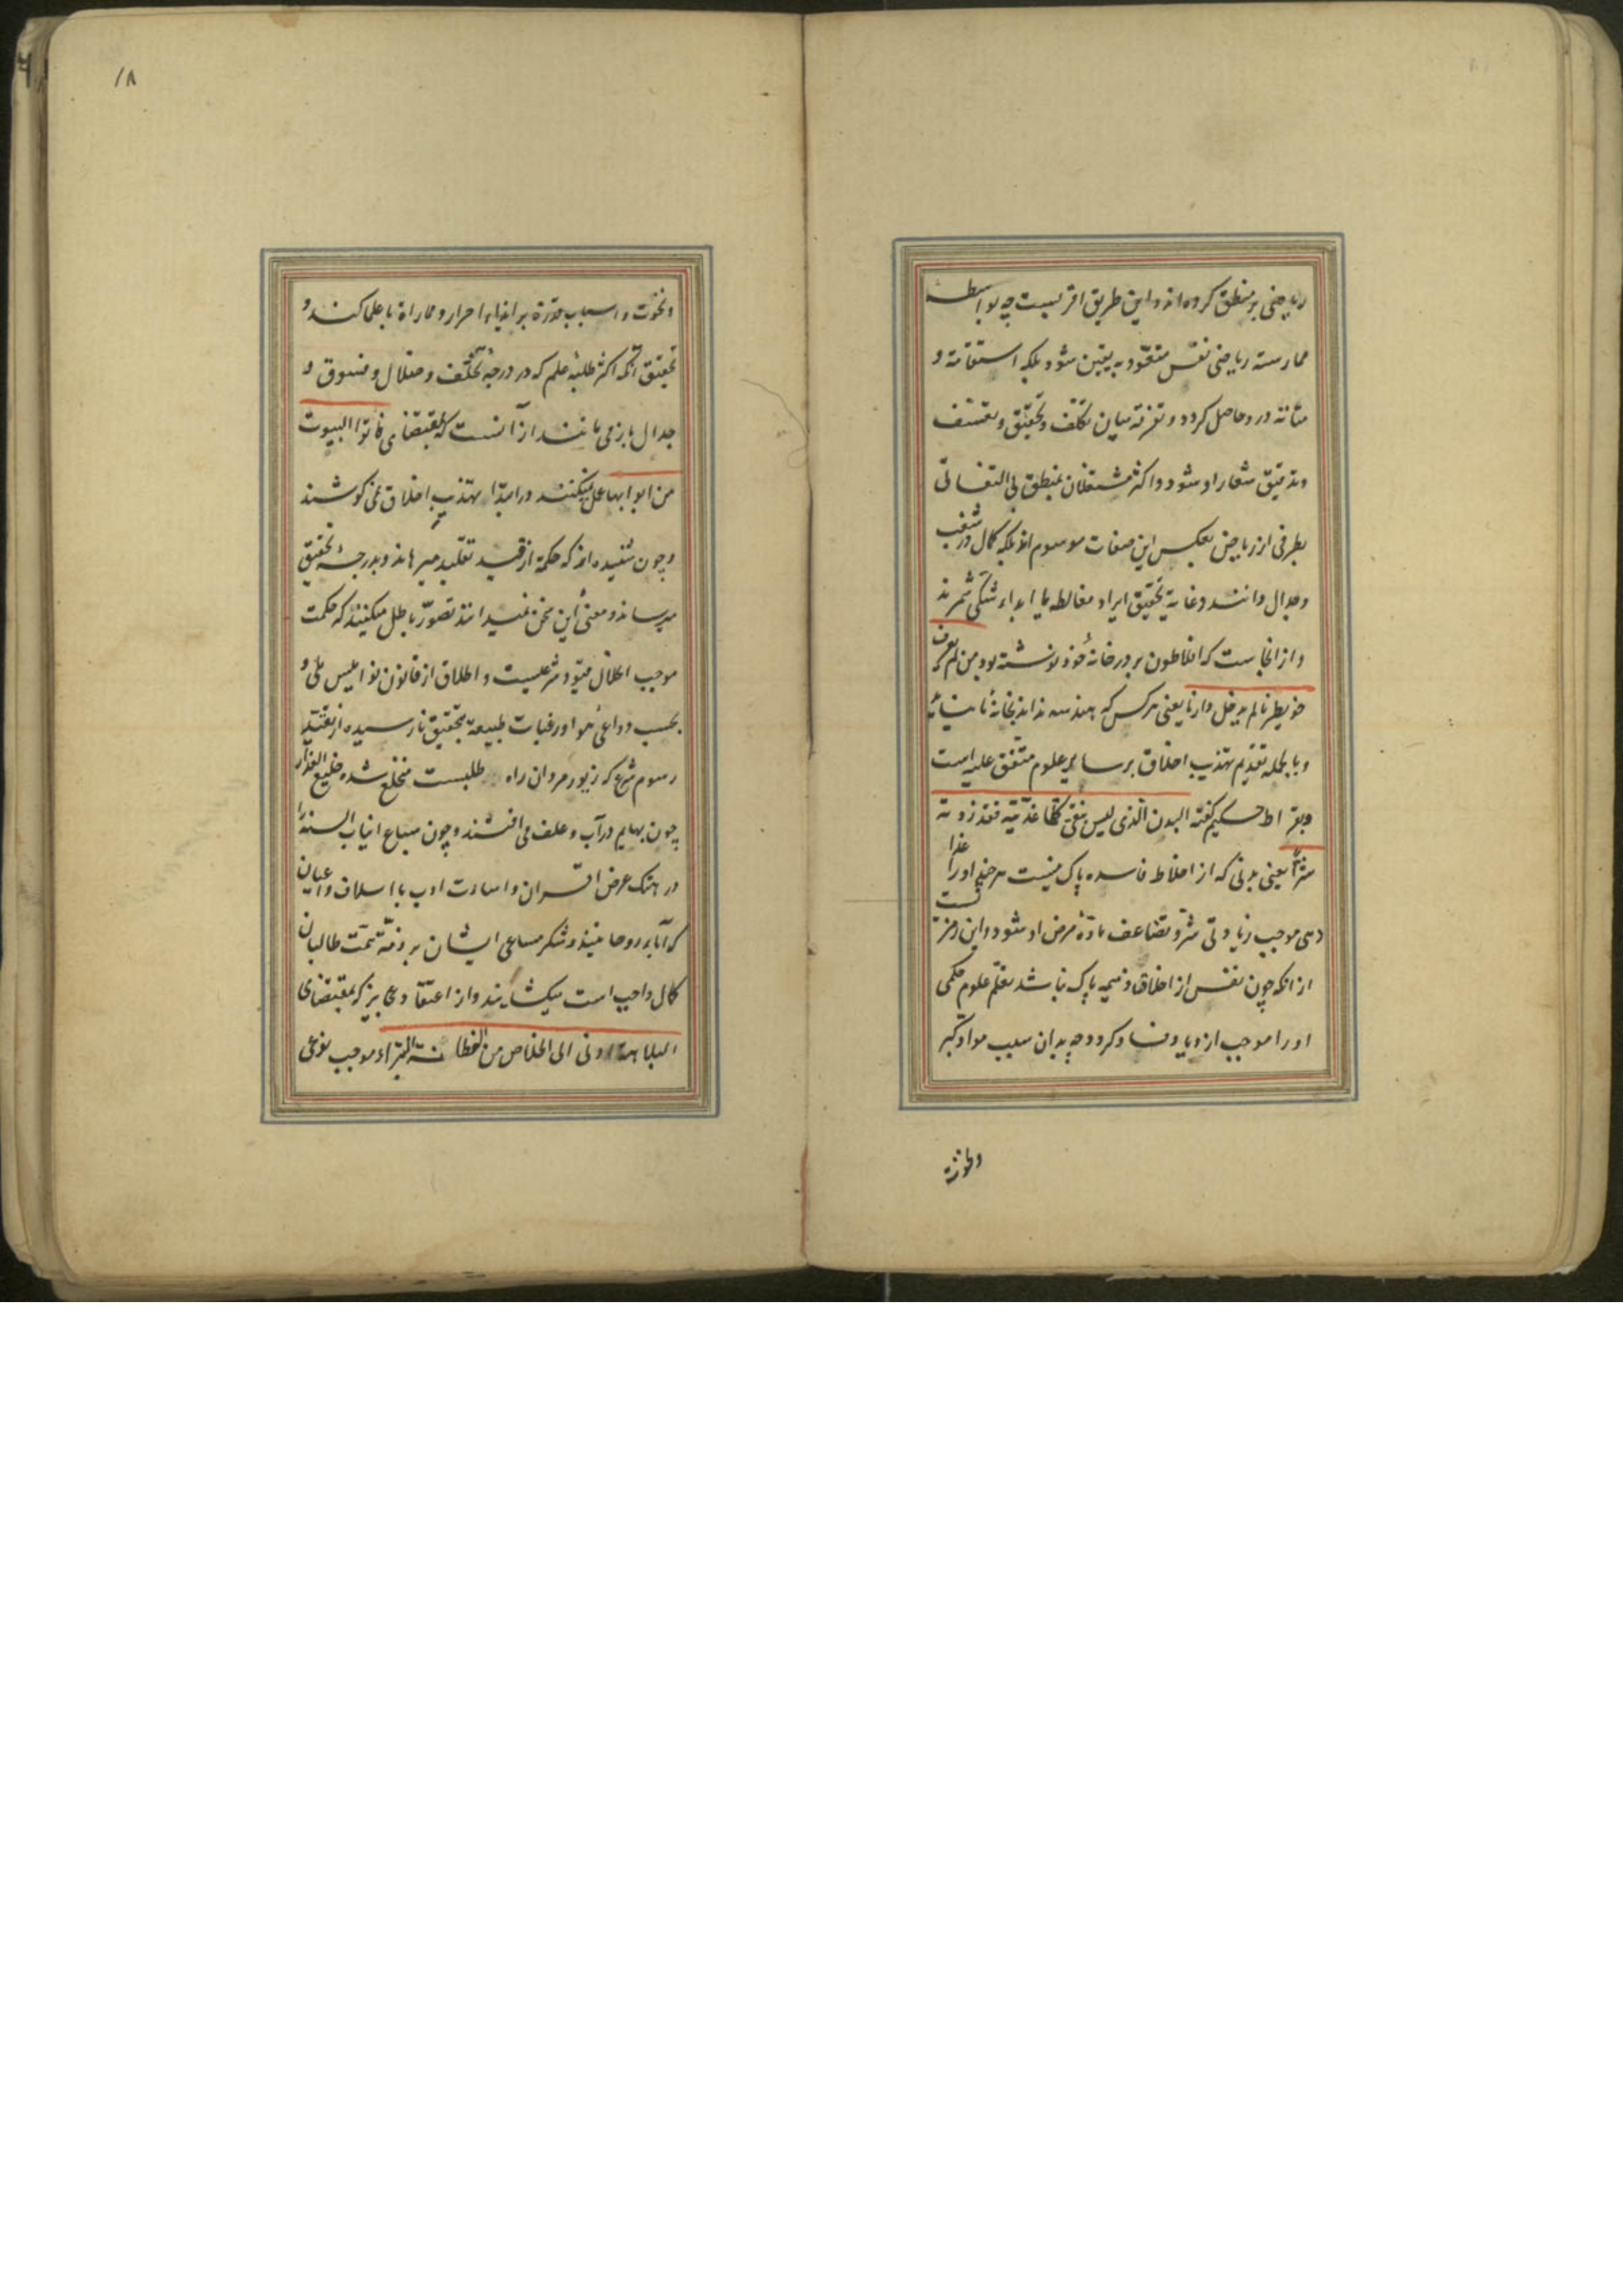 ریاضی بر منطق کرده اند و این طریق اقربست چه بواسطه
ممارسته ریاضی نفس متعوّد به یقین شود و ملکه استقامة و
متانة در و حاصل کردد و تفرقه میان تکلّف و تحقیق و تعسّف
و تدقیق شعار او شود و اکثر مشتغلان بمنطق بی التفاتی
بطرفی از ریاضی بعکس این صفات موسوم اند بلکه کمال در شغب
و جدال دانند و غایة تحقیق ایراد مغالطه یا ابداء شکی شمرند
و از انجاست که افلاطون بر در خانهٔ خود نوشته بود من لم یعرف
جومطریا لم یدخل دارنا یعنی هر کس که هندسه نداند بخانهٔ ما نیاید
و بالجمله تقدیم تهذیب اخلاق بر سایر علوم متّفق علیه است
و بقراط حکیم گفته البدن الّذی لیس بنقی کلّما غذّیته فقد زدته
شرّاً یعنی بدنی که از اخلاط فاسده پاک نیست هر چند او را غذا
دهی موجب زیادتی شرّ و تضاعف مادّهٔ مرض او شود و این رمزیست
از انکه چون نفس از اخلاق ذمیمه پاک نباشد تعلّم علوم حکمی
او را موجب ازدیاد فساد کردد چه بدان سبب مواد کبر
و نخوت
۱۸
و نخوت و اسباب قدرة بر ایذاء احرار و مماراة با علما کند و
تحقیق آنکه اکثر طلبهٔ علم که در درجهٔ تخلّف و ضلال و فسوق و
جدال باز می مانند از آنست که بمقتضای فاتوا البیوت
من ابوابها عمل نمیکنند و در ابتدا بتهذیب اخلاق نمی کوشند
و چون شنیده اند که حکمة از قید تقلید میرهاند و بدرجهٔ تحقیق
میرساند و معنی این سخن نمیدانند تصوّر باطل میکنند که حکمت
موجب اخلال قیود شرعیست و اطلاق از قانون نوامیس ملی و
بحسب دواعی هوا و رغبات طبیعة بتحقیق نارسیده از تقیّد
رسوم شرع که زیور مردان راه طلبست منخلع شده خلیع العذار
چون بهایم در آب و علف می افتند و چون سباع انیاب السنه را
در هتک عرض اقران و اسائت ادب با اسلاف و اعیان
که آباء روحانیند و شکر مساعی ایشان بر ذمّة همّت طالبان
کمال واجب است میکشایند و از اعتقاد نیز که بمقتضای
البلاهة ادنی الی الخلاص من الفطانة البتراء موجب نوعی